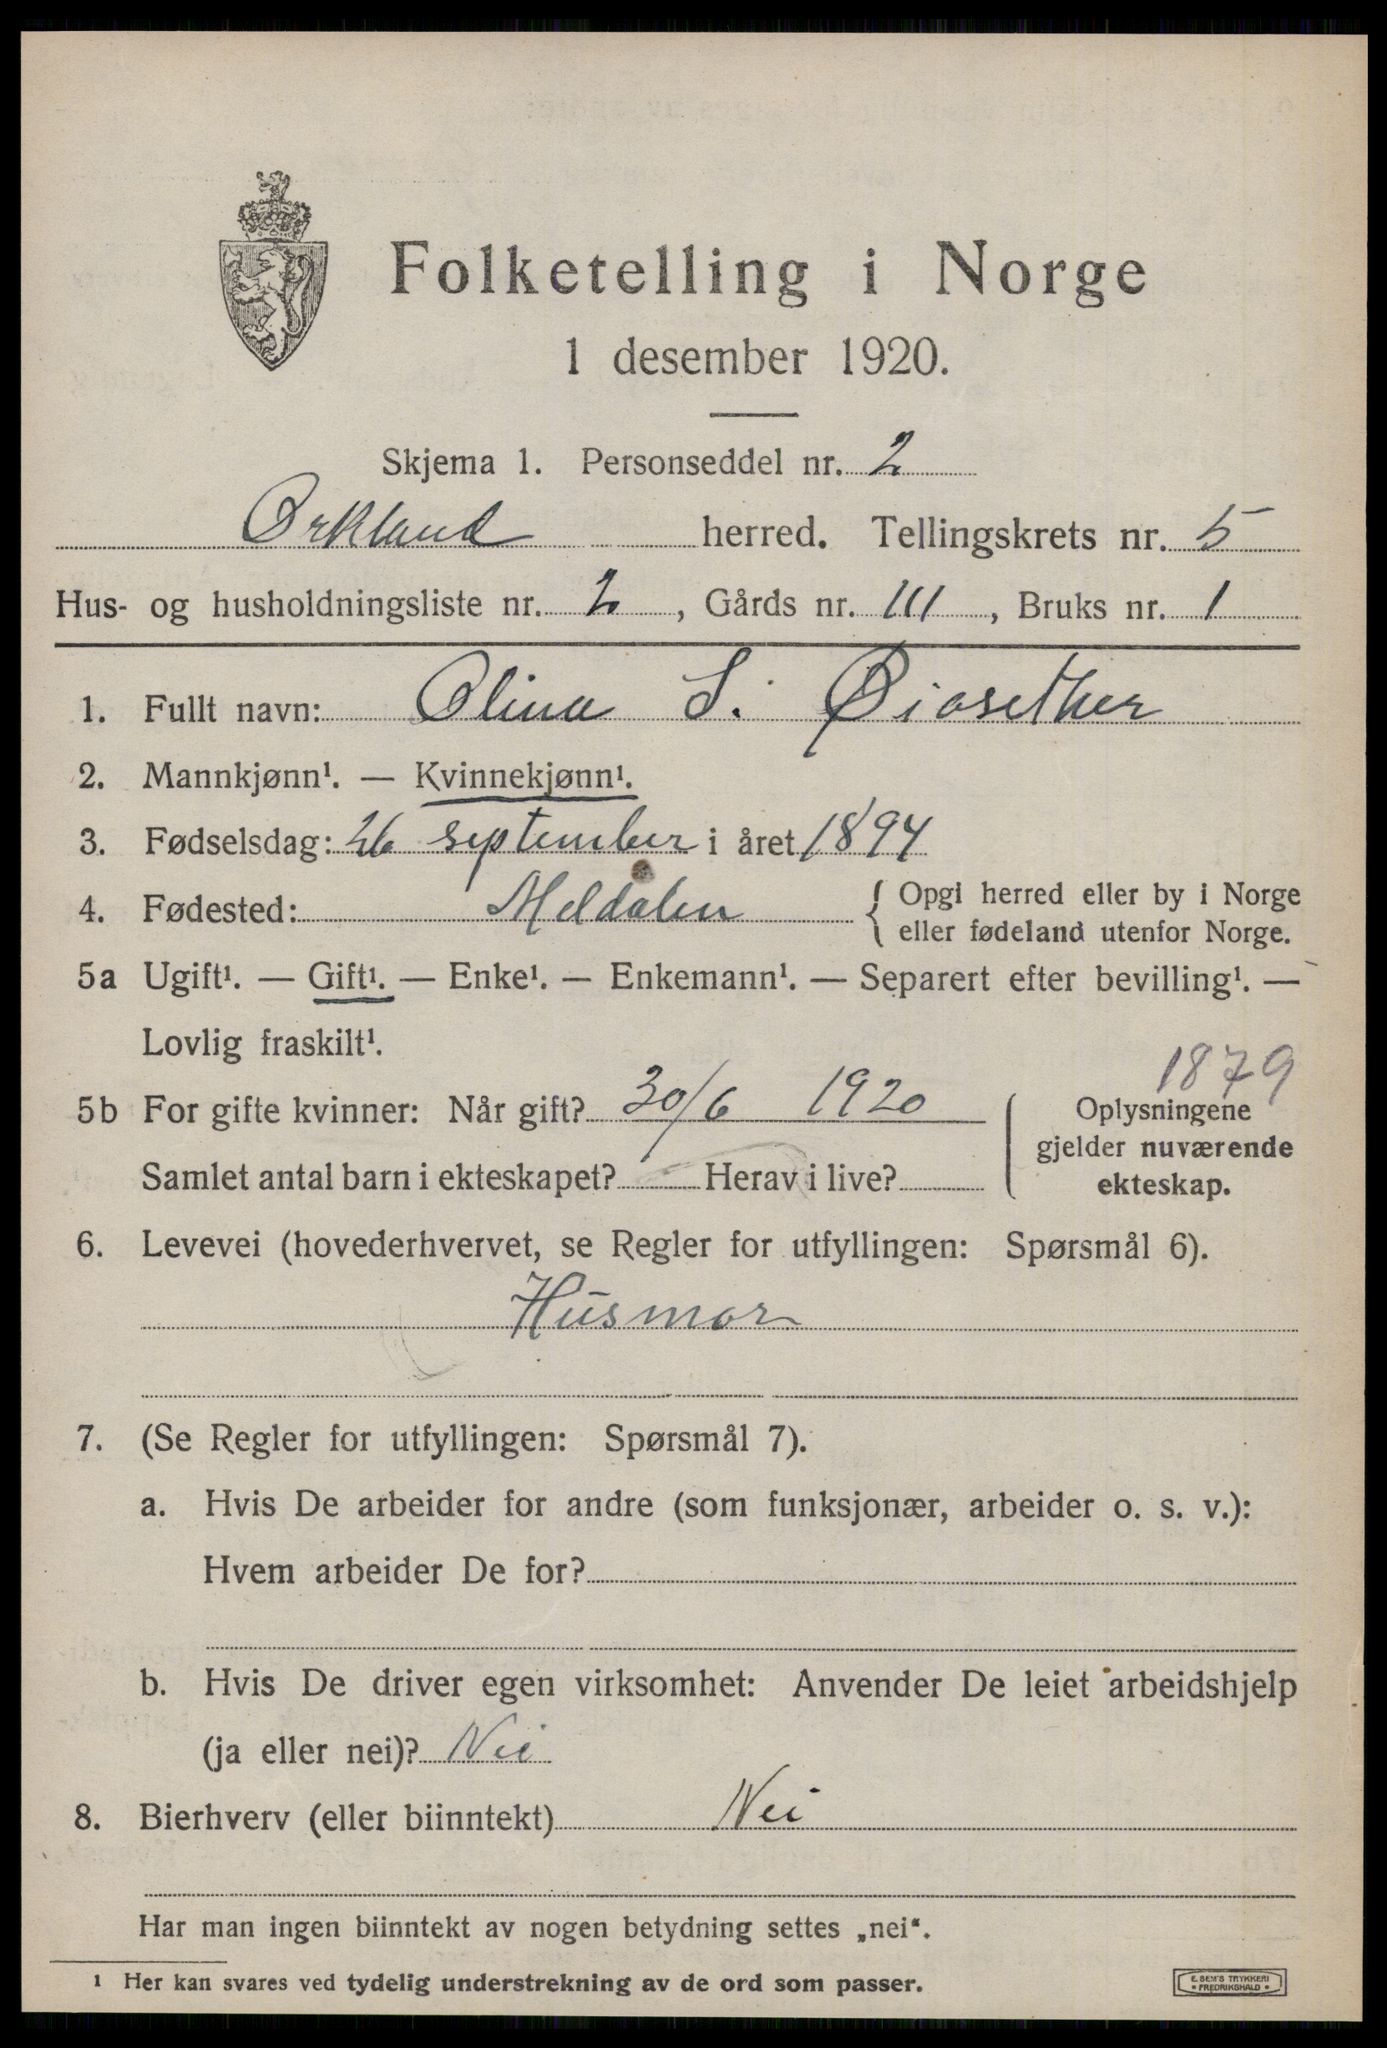 Folketelling i Norge
1 desember 1920.
Skjema 1. Personseddel nr. 2
Orkland herred. Tellingskrets nr. 5
Hus- og husholdningsliste nr. 2, Gårds nr. 111, Bruks nr. 1
1. Fullt navn: Olina S. Øiasether
2. Mannkjønn¹. — Kvinnekjønn¹.
3. Fødselsdag: 26 september i året 1894
4. Fødested: Meldalen { Opgi herred eller by i Norge
eller fødeland utenfor Norge.
5a Ugift¹. — Gift¹. — Enke¹. — Enkemann¹. — Separert efter bevilling¹. —
Lovlig fraskilt¹.
1879
5b For gifte kvinner: Når gift? 30/6 1920
Samlet antal barn i ekteskapet? Herav i live?
Oplysningene
gjelder nuværende
ekteskap.
6. Levevei (hovederhvervet, se Regler for utfyllingen: Spørsmål 6).
Husmor
7. (Se Regler for utfyllingen: Spørsmål 7).
a. Hvis De arbeider for andre (som funksjonær, arbeider o. s. v.):
Hvem arbeider De for?
b. Hvis De driver egen virksomhet: Anvender De leiet arbeidshjelp
(ja eller nei)? Nei
8. Bierhverv (eller biinntekt) Nei
Har man ingen biinntekt av nogen betydning settes „nei“.
1 Her kan svares ved tydelig understrekning av de ord som passer.
E. SEM'S TRYKKERI
• FREDRIKSHALD •